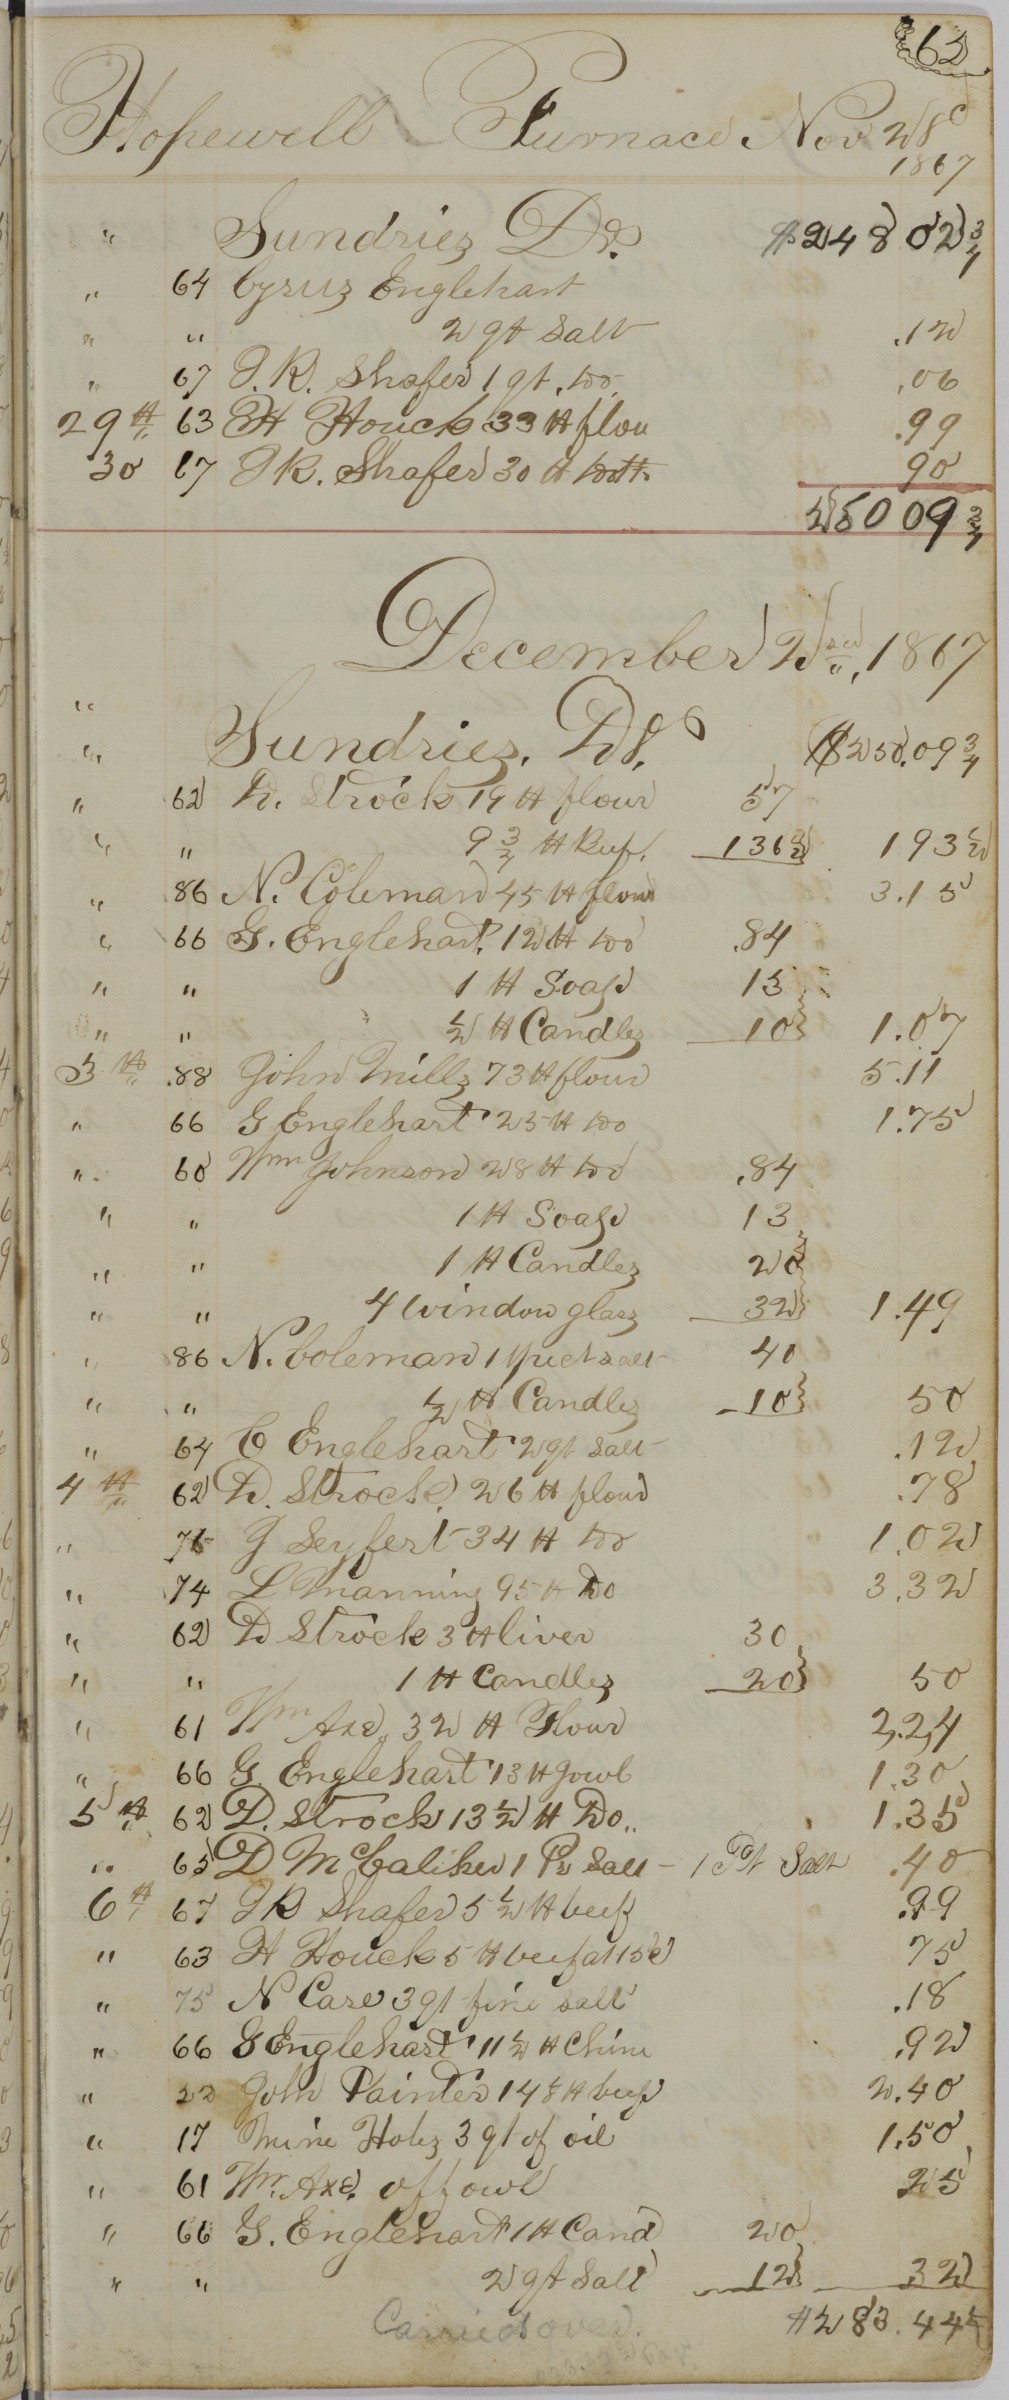 65
Hopewell Furnace Nov 28
1867
" Sundries Dr. $248 02 3/4
" 64 Cyrus Englehart
" " 2 qt Salt .12
" 67 J. R. Shafer 1 qt. do .06
29th 63 H Houck 33 lb flou .99
30 67 J R. Shafer 30 lb 90
250 09 3/4
December 2nd, 1867
"
" Sundries. Dr. $250.09 3/4
" 62 D. Strock 19 lb flour 57
" " 9 3/4 lb Beef. 136 1/2 193 1/2
" 86 N. Coleman 45 lb flour 3.15
" 66 G. Englehart. 12 lb do .84
" " 1 lb Soap 13
" " 1/2 lb Candles 10 1.07
3th 88 John Mills 73 lb flour 5.11
" 66 G Englehart 25 lb do 1.75
" 60 Wm Johnson 28 lb do .84
" " 1 lb Soap 13
" " 1 lb Candles 20
" " 4 window glass 32 1.49
" 86 N. Coleman 1 salt 40
" " 1/2 lb Candles 10 50
" 64 C Englehart 2 qt Salt .12
4th 62 D. Strock. 26 lb flour .78
" 76 J Seyfert 34 lb do 1.02
" 74 L Manning 95 lb Do 3.32
" 62 D Strock 3 lb liver 30
" " 1 lb Candles 20 50
" 61 Wm Axe. 32 lb Flour 2.24
" 66 G. Englehart 13 lb Jowl 1.30
5th 62 D. Strock 13 1/2 lb Do.. 1.35
" 65 D McCaliker 1 Salt - 1 Salt .40
6th 67 J R Shafer 5 1/2 lb beef .99
" 63 H Houck 5 lb beef at 15c 75
" 75 N Care 3 qt fine salt .18
" 66 G Englehart 11 1/2 lb Chine .92
" 22 John Painter 14 lb beef 2.40
" 17 Mine Holes 3 qt of oil 1.50
" 61 Wm. Axe. of fowl 25
" 66 G. Englehart 1 lb Cand 20
" " 2 qt Salt 12 32
Carried over. $283.44 1/4